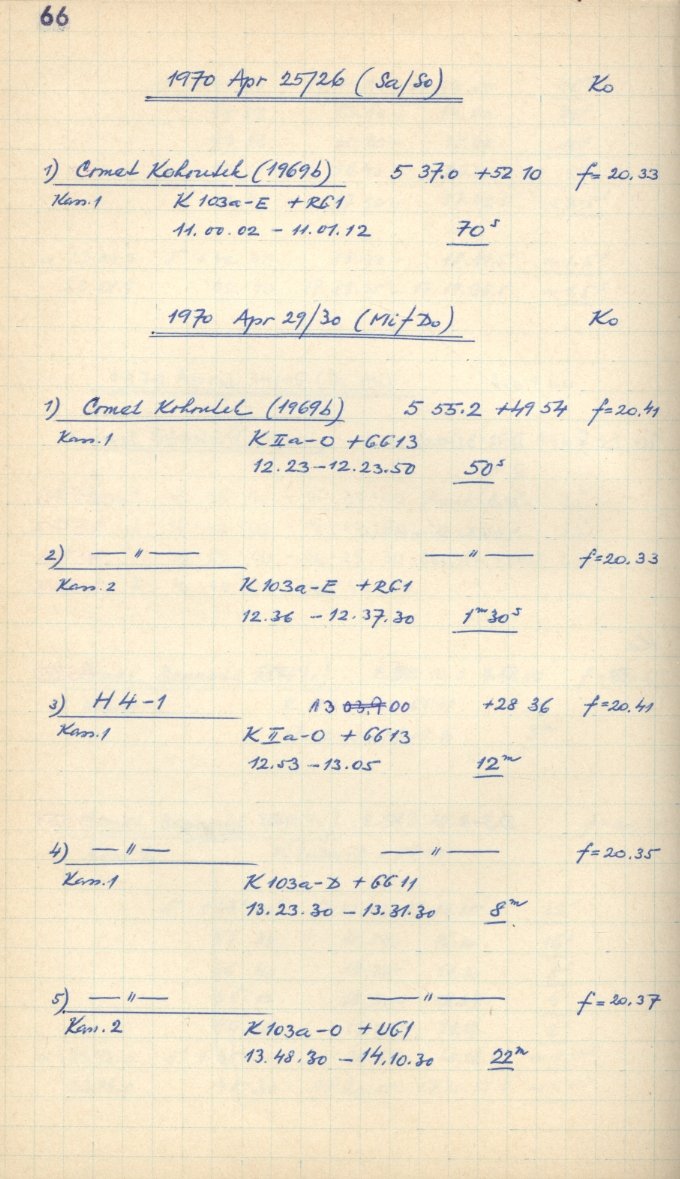 66
1970 Apr 25/26 (Sa/So) Ko
1) Comet Kohoutek (1969b) 5 37.0 +52 10 f=20.33
Kass.1 K 103a-E +RG1
11.00.02 - 11.01.12 70s
1970 Apr 29/30 (Mi/Do) Ko
1) Comet Kohoutek (1969b) 5 55.2 +49 54 f=20.41
Kass.1 K IIa-O +GG13
12.23-12.23.50 50s
2) — " — — " — f=20.33
Kass.2 K103a-E +RG1
12.36 - 12.37.30 1m30s
3) H4-1 13 03.9 00 +28 36 f=20.41
Kass.1 K IIa-O + GG13
12.53 - 13.05 12m
4) — " — — " — f=20.35
Kass.1 K103a-D + GG11
13.23.30 - 13.31.30 8m
5) — " — — " — f=20.37
Kass.2 K103a-O + UG1
13.48.30 - 14.10.30 22m